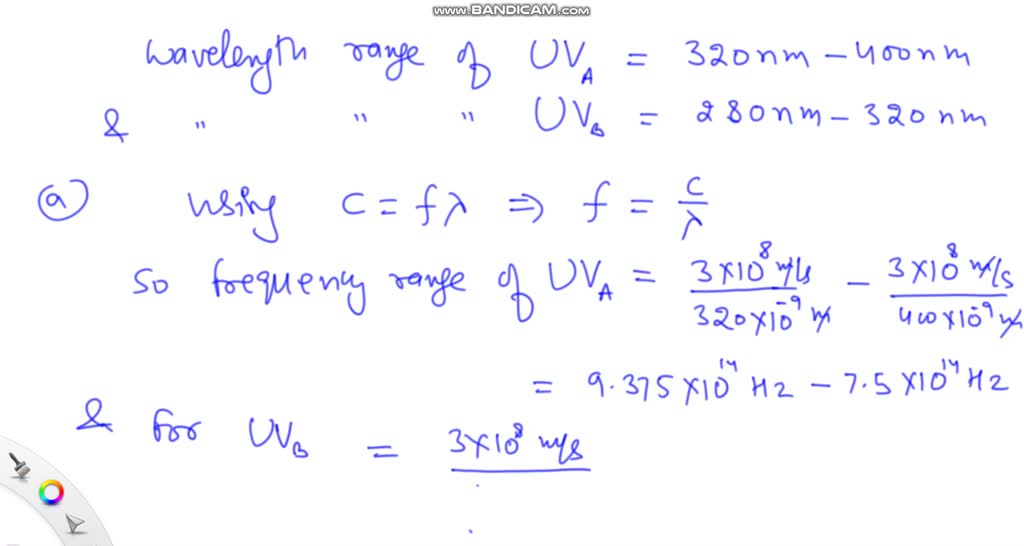 www.BANDICAM.com
wavelength range of UV_A = 320nm - 400nm
& " " " UV_B = 280nm - 320nm
(a) using c = fλ ⇒ f = c/λ
So frequency range of UV_A = 3×10^8 m/s / 320×10^-9 m - 3×10^8 m/s / 400×10^-9 m
= 9.375×10^14 Hz - 7.5×10^14 Hz
& for UV_B = 3×10^8 m/s